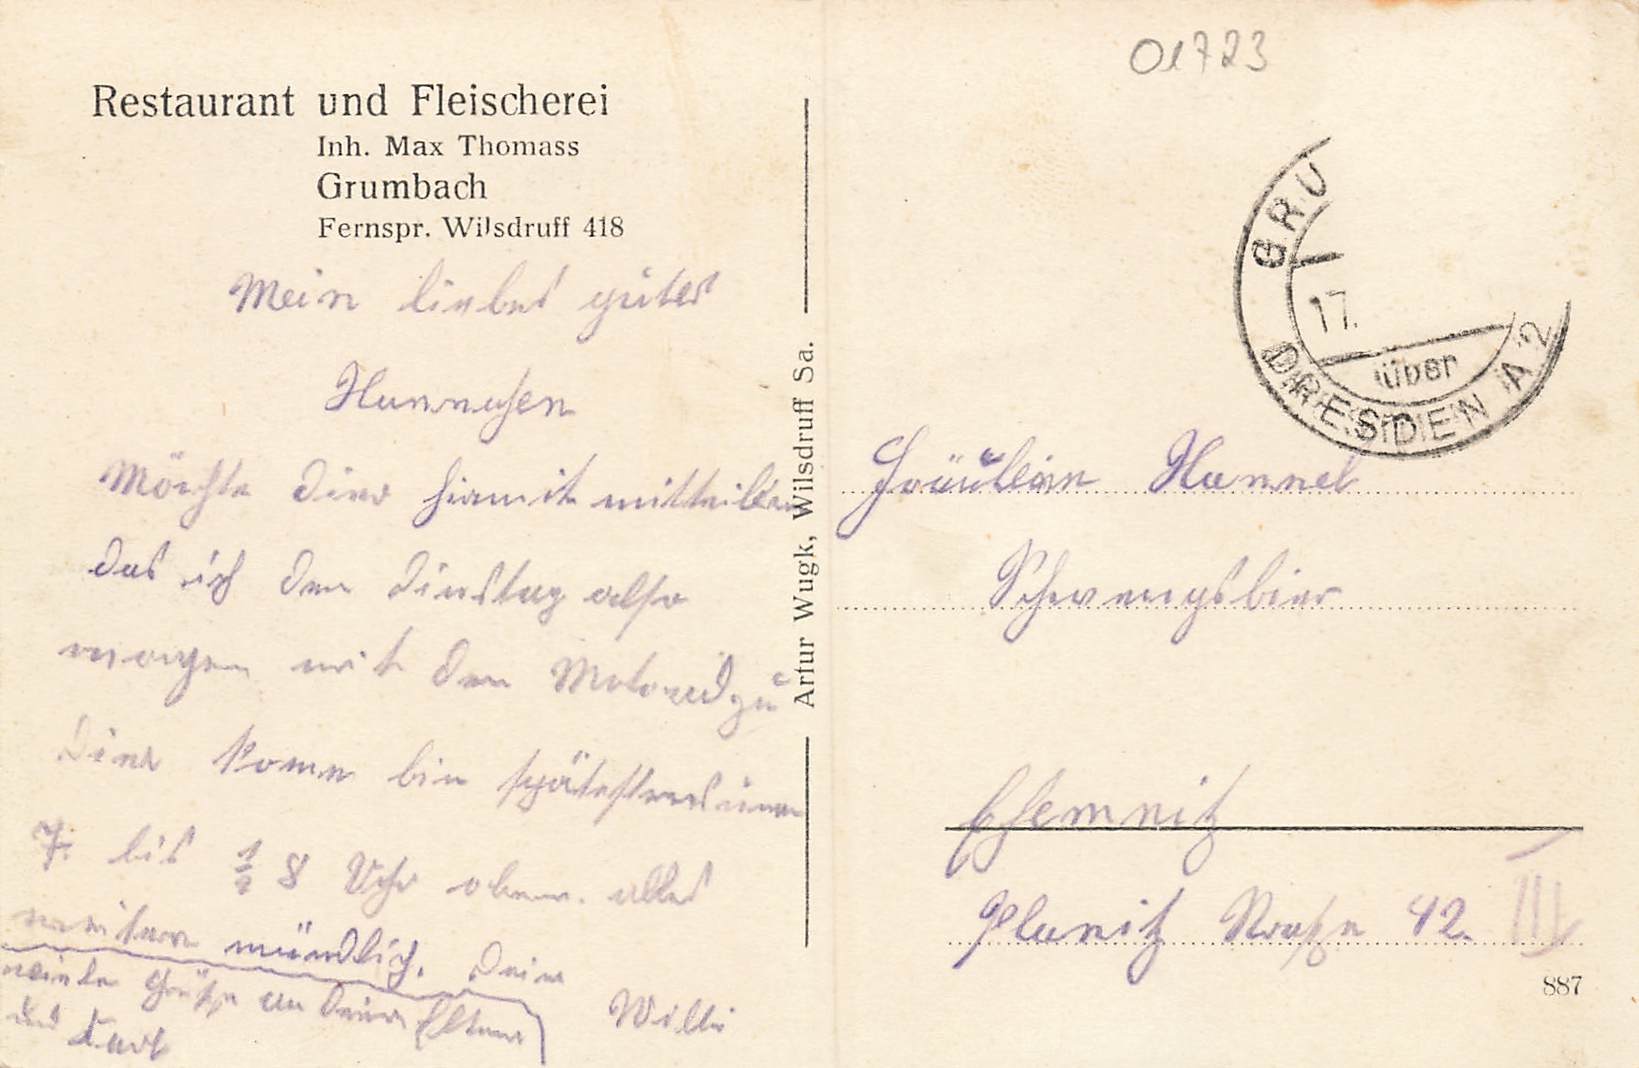 01723
Restaurant und Fleischerei
Inh. Max Thomass
Grumbach
Fernspr. Wilsdruff 418
Mein liebes gutes
Hannchen
Möchte Dier hiermit mitteilen
das ich den Dinstag also
morgen mit den Motorad zu
Dier kome bin spätestens
7. bis ½ 8 Uhr oben. alles
weitere mündlich. Dein
Willi
viele Grüße an Deine Eltern
und Karl
Artur Wugk, Wilsdruff Sa.
GRU
17.
über
DRESDEN A 2
Fräulein Hannel
Schwengsbier
Chemnitz
Planitz Straße 42.
III
887